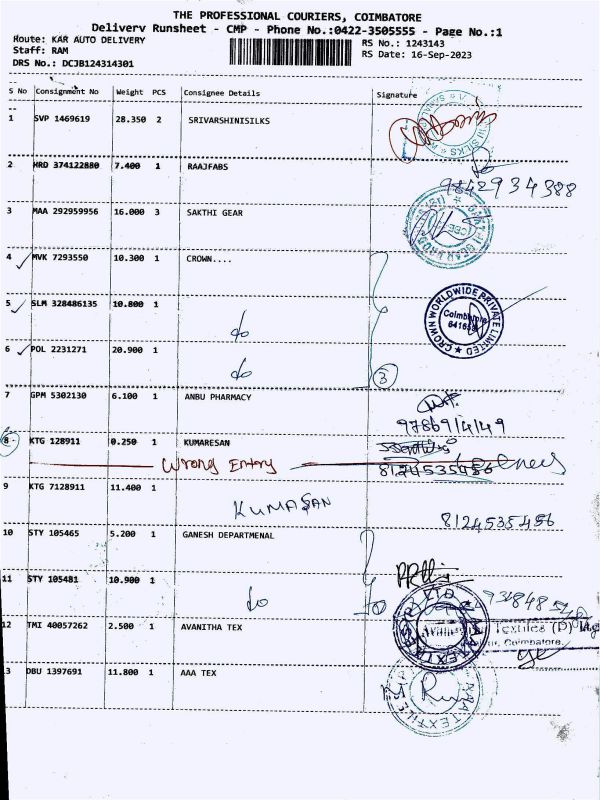 THE PROFESSIONAL COURIERS, COIMBATORE
Delivery Runsheet - CMP - Phone No.:0422-3505555 - Page No.:1
Route: KAR AUTO DELIVERY
RS No.: 1243143
Staff: RAM
RS Date: 16-Sep-2023
DRS No.: DCJB124314301
S No Consignment No Weight PCS Consignee Details Signature
1 SVP 1469619 28.350 2 SRIVARSHINISILKS
2 HRD 374122880 7.400 1 RAAJFABS
9842934388
3 MAA 292959956 16.000 3 SAKTHI GEAR
4 MVK 7293550 10.300 1 CROWN....
5 SLM 328486135 10.800 1
do
CROWN WORLDWIDE PRIVATE LIMITED
Coimbatore
6 POL 2231271 20.900 1
do
3
7 GPM 5302130 6.100 1 ANBU PHARMACY
8 KTG 128911 0.250 1 KUMARESAN
Wrong Entry
8124535456
9 KTG 7128911 11.400 1
KUMASAN
8124535456
10 STY 105465 5.200 1 GANESH DEPARTMENAL
11 STY 105481 10.900 1
do
12 TMI 40057262 2.500 1 AVANITHA TEX
Textiles (P)
Coimbatore.
13 DBU 1397691 11.800 1 AAA TEX